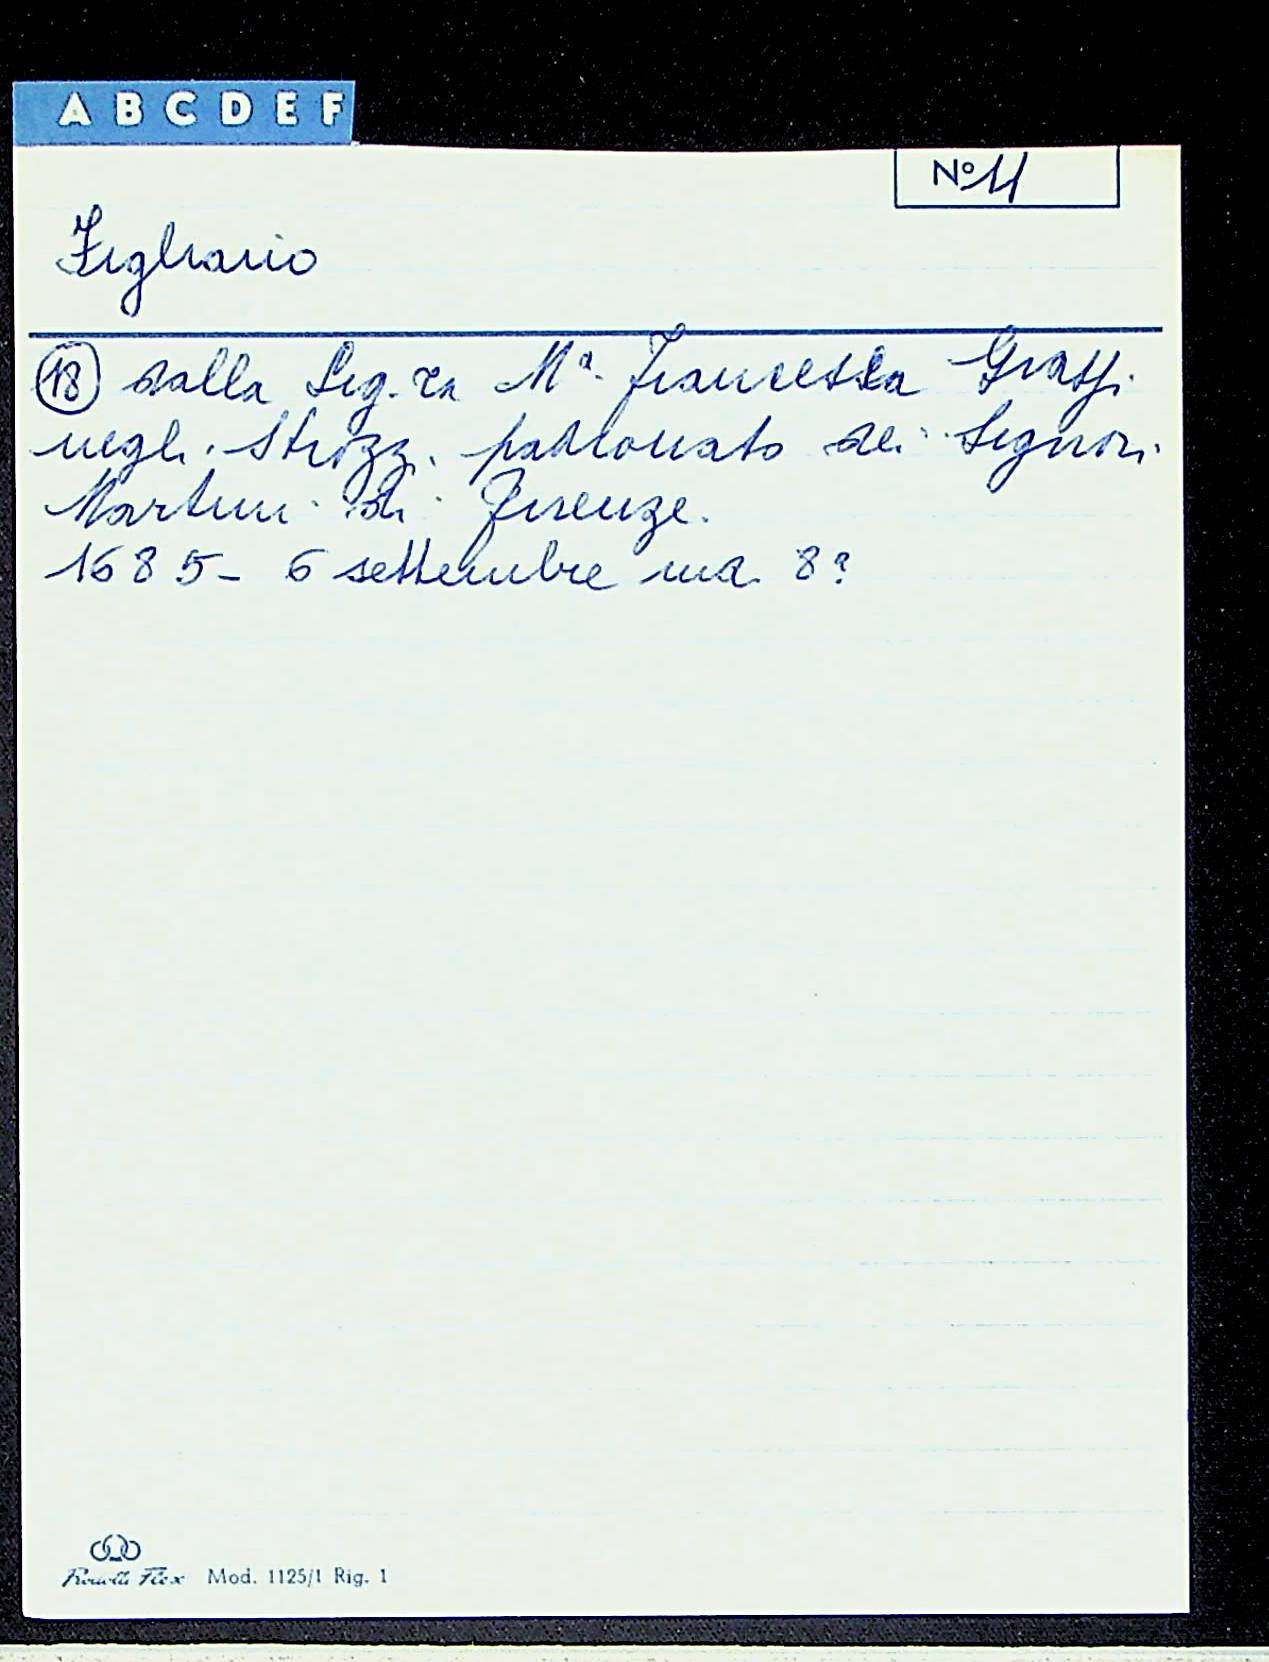 A B C D E F
Nº 11
Figliano
(18) dalla Sig.ra Mª. Francesca Grassi
negli Strozzi, patronato dei Signori
Martini di Firenze.
1685 - 6 settembre ma. 8?
Mod. 1125/1 Rig. 1